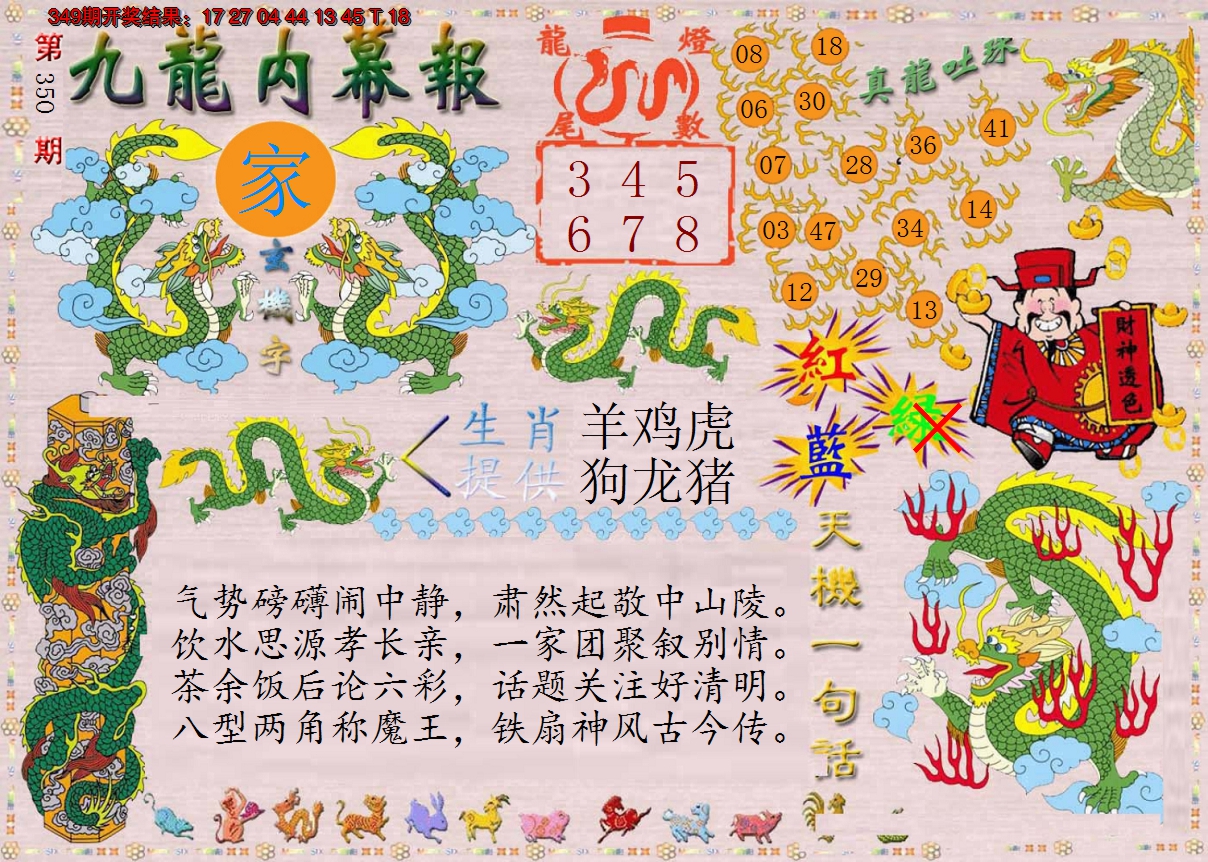 349期开奖结果：17 27 04 44 13 45 T 18
第350期
九龍内幕報
家
玄機字
龍燈尾數
3 4 5
6 7 8
真龍吐珠
08 18
06 30
36 41
07 28
14
03 47 34
29
12 13
紅
綠
藍
財神透色
生肖 羊鸡虎
提供 狗龙猪
气势磅礴闹中静，肃然起敬中山陵。
饮水思源孝长亲，一家团聚叙别情。
茶余饭后论六彩，话题关注好清明。
八型两角称魔王，铁扇神风古今传。
天機一句話